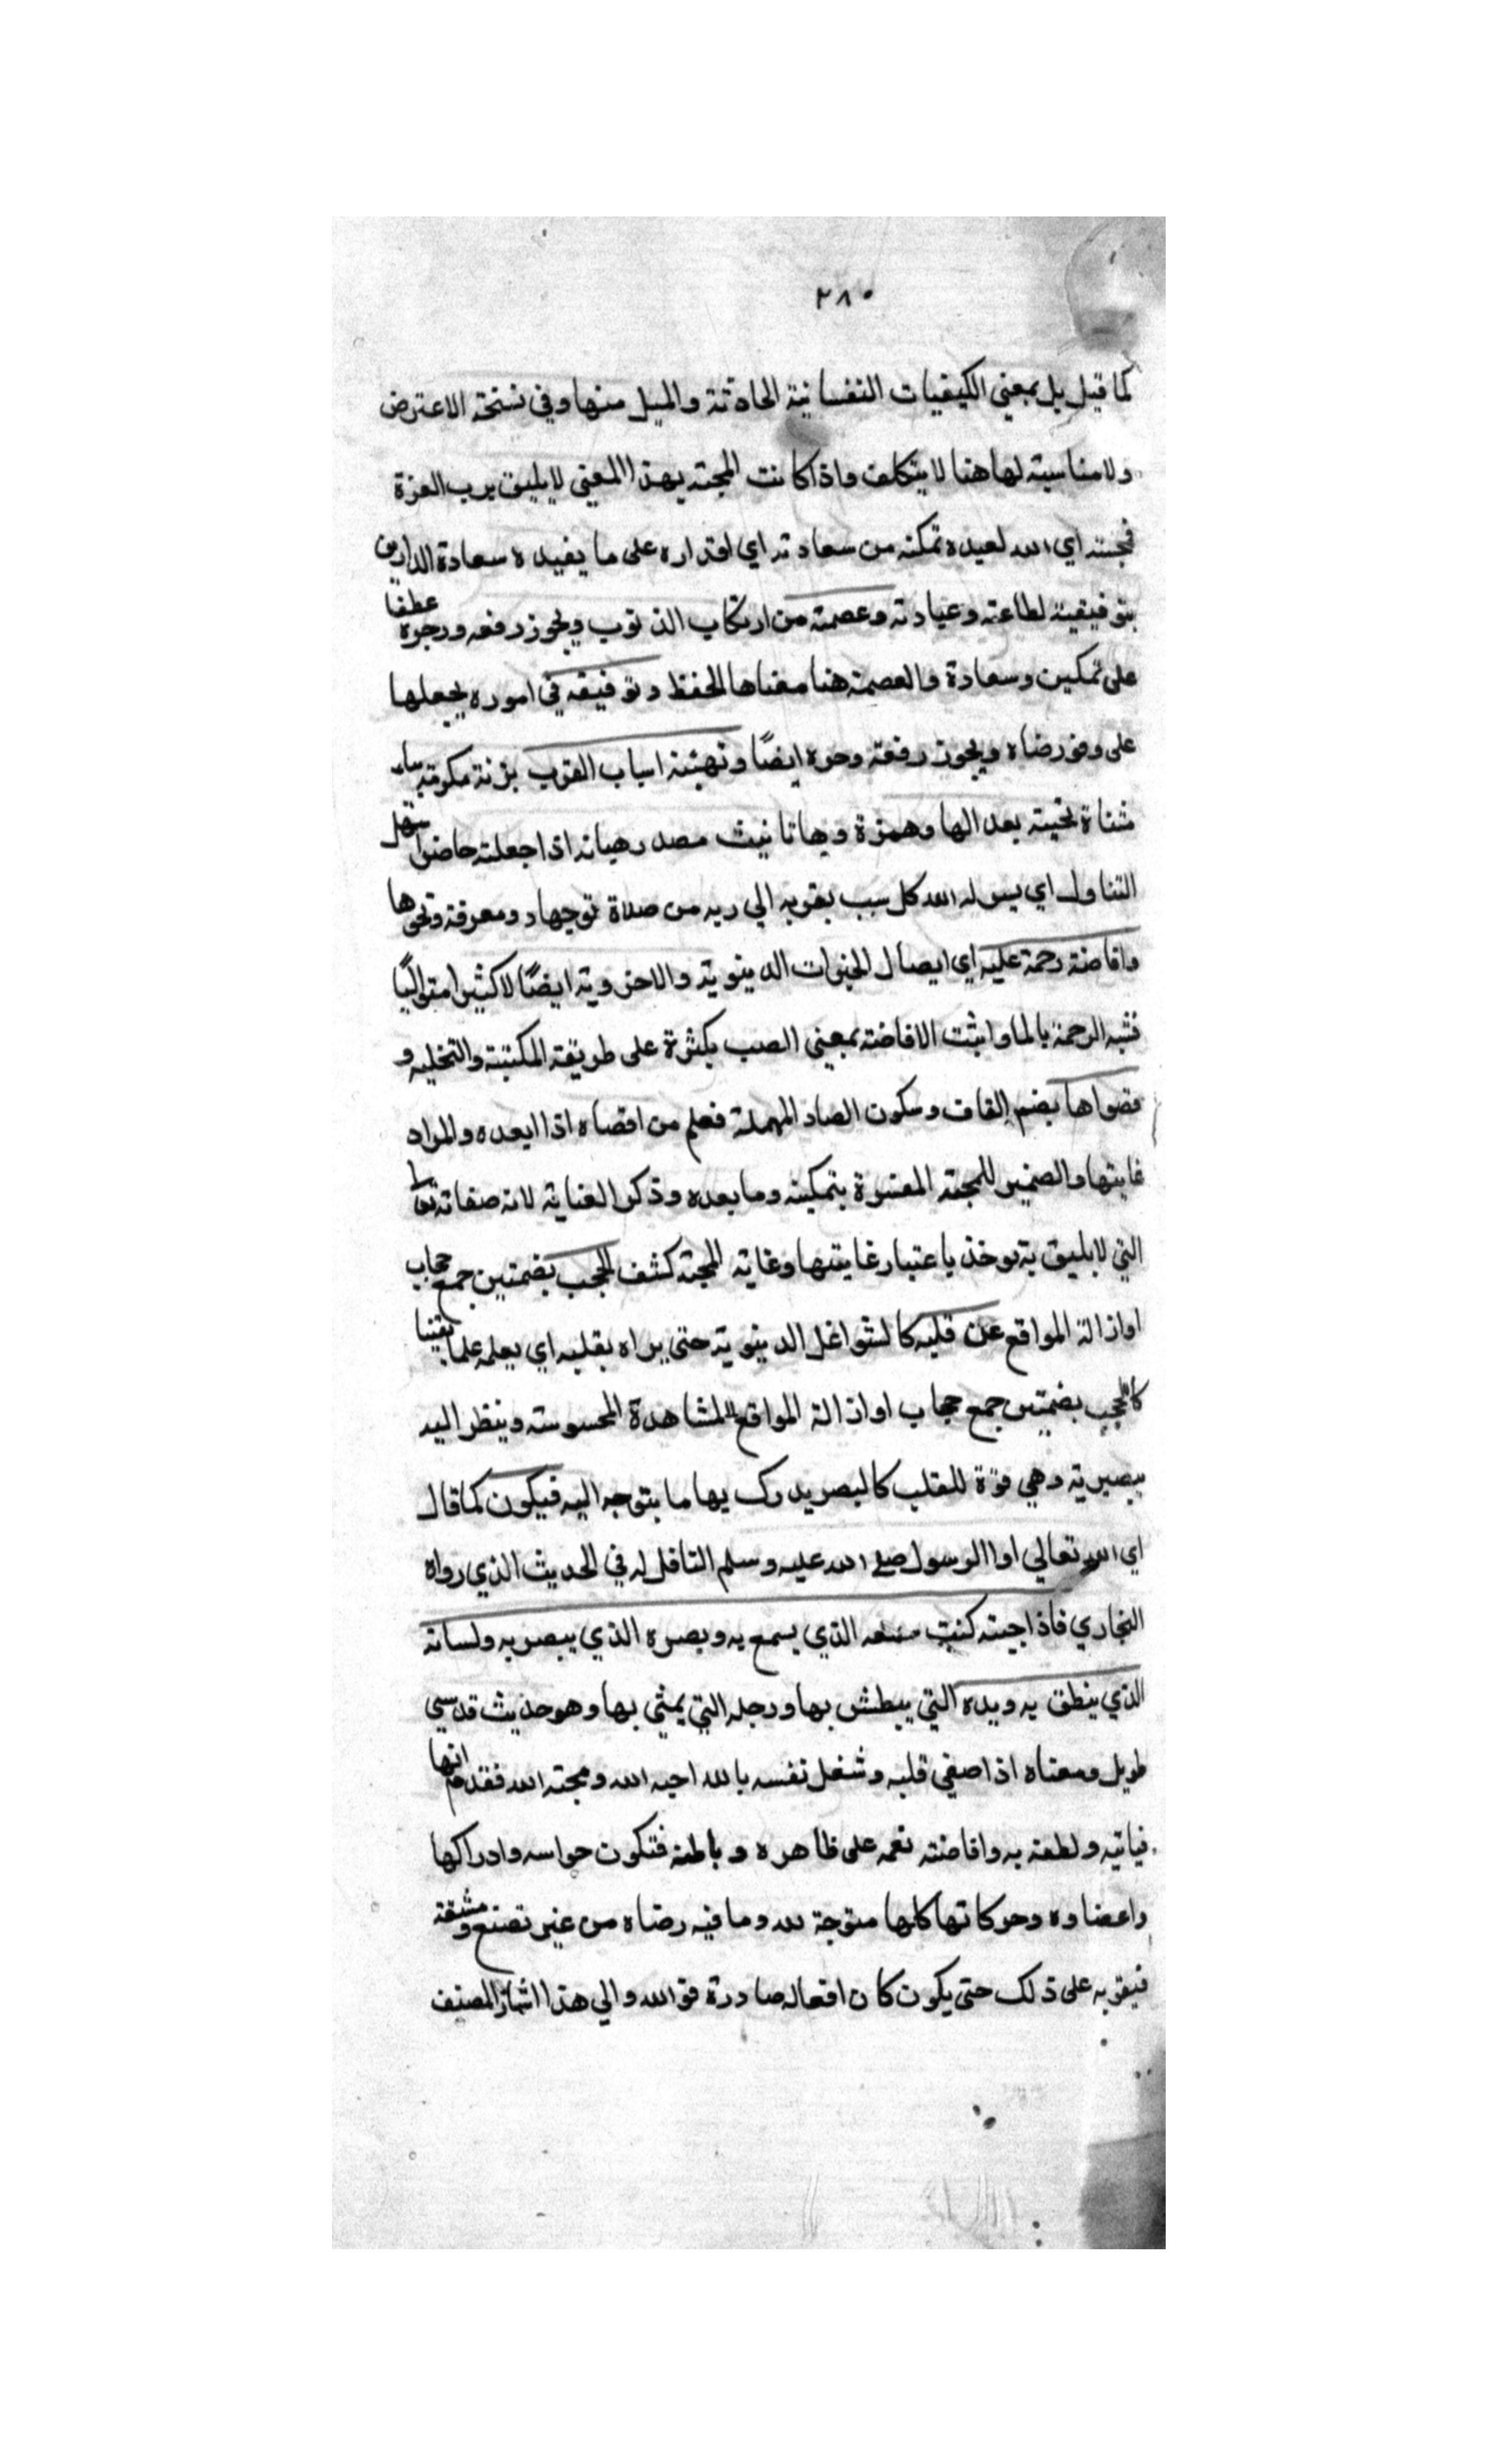 ٢٨٠
كما قيل بل بمعني الكيفيات النفسانية الحادثة والميل منها وفي نسخة الاعترض
ولا مناسبة لها هنا لا بتكلف واذا كانت المحبة بهذا المعني لا يليق برب العزة
فمحبته اي الله لعبده تمكنه من سعادته اي اقداره على ما يفيده سعادة الدارين
بتوفيقيه لطاعته وعبادته وعصمته من ارتكاب الذنوب ويجوز رفعه وجره عطفا
على تمكين وسعادة والعصمة هنا معناها الحفظ وتوفيقه في اموره يجعلها
على وفق رضاه ويجوز رفعه وجره ايضًا وتهيئة اسباب القرب بزنة تكرمة بياء
مثناة تحتية بعد الها وهمزة وها تانيث مصدر هيأته اذا جعلته حاضرا سهل
التناول اي يسر له الله كل سبب يقربه الي ربه من صلاة توجهاد ومعرفة ونحوها
وافاضة رحمة عليه اي ايصال الخيرات الدينوية والاخروية ايضًا لا كثيرا متواليًا
فشبه الرحمة بالما واثبت الافاضة بمعني الصب بكثرة على طريقة المكنية والتخليه و
قصواها بضم القاف وسكون الصاد المهملة فعلم من اقصاه اذا ابعده والمراد
غايتها والضمير للمحبة المفسرة بتمكينه وما بعده وذكر الغناية لانه صفاته تعا
التي لا يليق به يوخذ باعتبار غايتها وغاية المحبة كشف الحجب بضمتين جمع حجاب
او ازالة المواقع عن قلبه كالشواغل الدينوية حتى يراه بقلبه اي يعلمه علما يقينا
كالحجب بضمتين جمع حجاب او ازالة المواقع المشاهدة المحسوسته وينظر اليه
ببصيرية وهي قوة للقلب كالبصر يدرك بها ما يتوجه اليه فيكون كما قال
اي الله تعالي او الرسول صلى الله عليه وسلم الناقل له في الحديث الذي رواه
البخاري فاذا احببته كنت سمعه الذي يسمع به وبصره الذي يبصر به ولسانه
الذي ينطق به ويده التي يبطش بها ورجله التي يمشي بها وهو حديث قدسي
طويل ومعناه اذا صفي قلبه وشغل نفسه بالله احبه الله ومحبته الله فقدم انها
فياتيه ولطفه به وافاضته نعمه على ظاهره وباطنه فتكون حواسه وادراكها
واعضاوه وحركاتها كلها متوجة لله وما فيه رضاه من غير تصنع ومشقة
فيقربه على ذلك حتى يكون كان افعاله صادرة فو الله والي هذا اشار المصنف